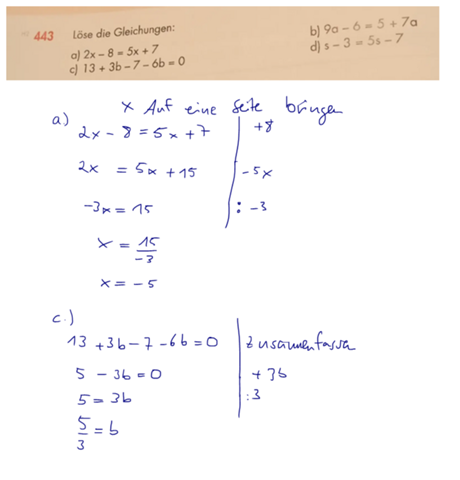 443 Löse die Gleichungen:
a) 2x – 8 = 5x + 7
b) 9a – 6 = 5 + 7a
c) 13 + 3b – 7 – 6b = 0
d) s – 3 = 5s – 7
x Auf eine Seite bringen
a)
2x - 8 = 5x + 7 | +8
2x = 5x + 15 | - 5x
-3x = 15 | : -3
x = 15/-3
x = - 5
c.)
13 + 3b - 7 - 6b = 0 | zusammenfassen
5 - 3b = 0 | + 3b
5 = 3b | :3
5/3 = b